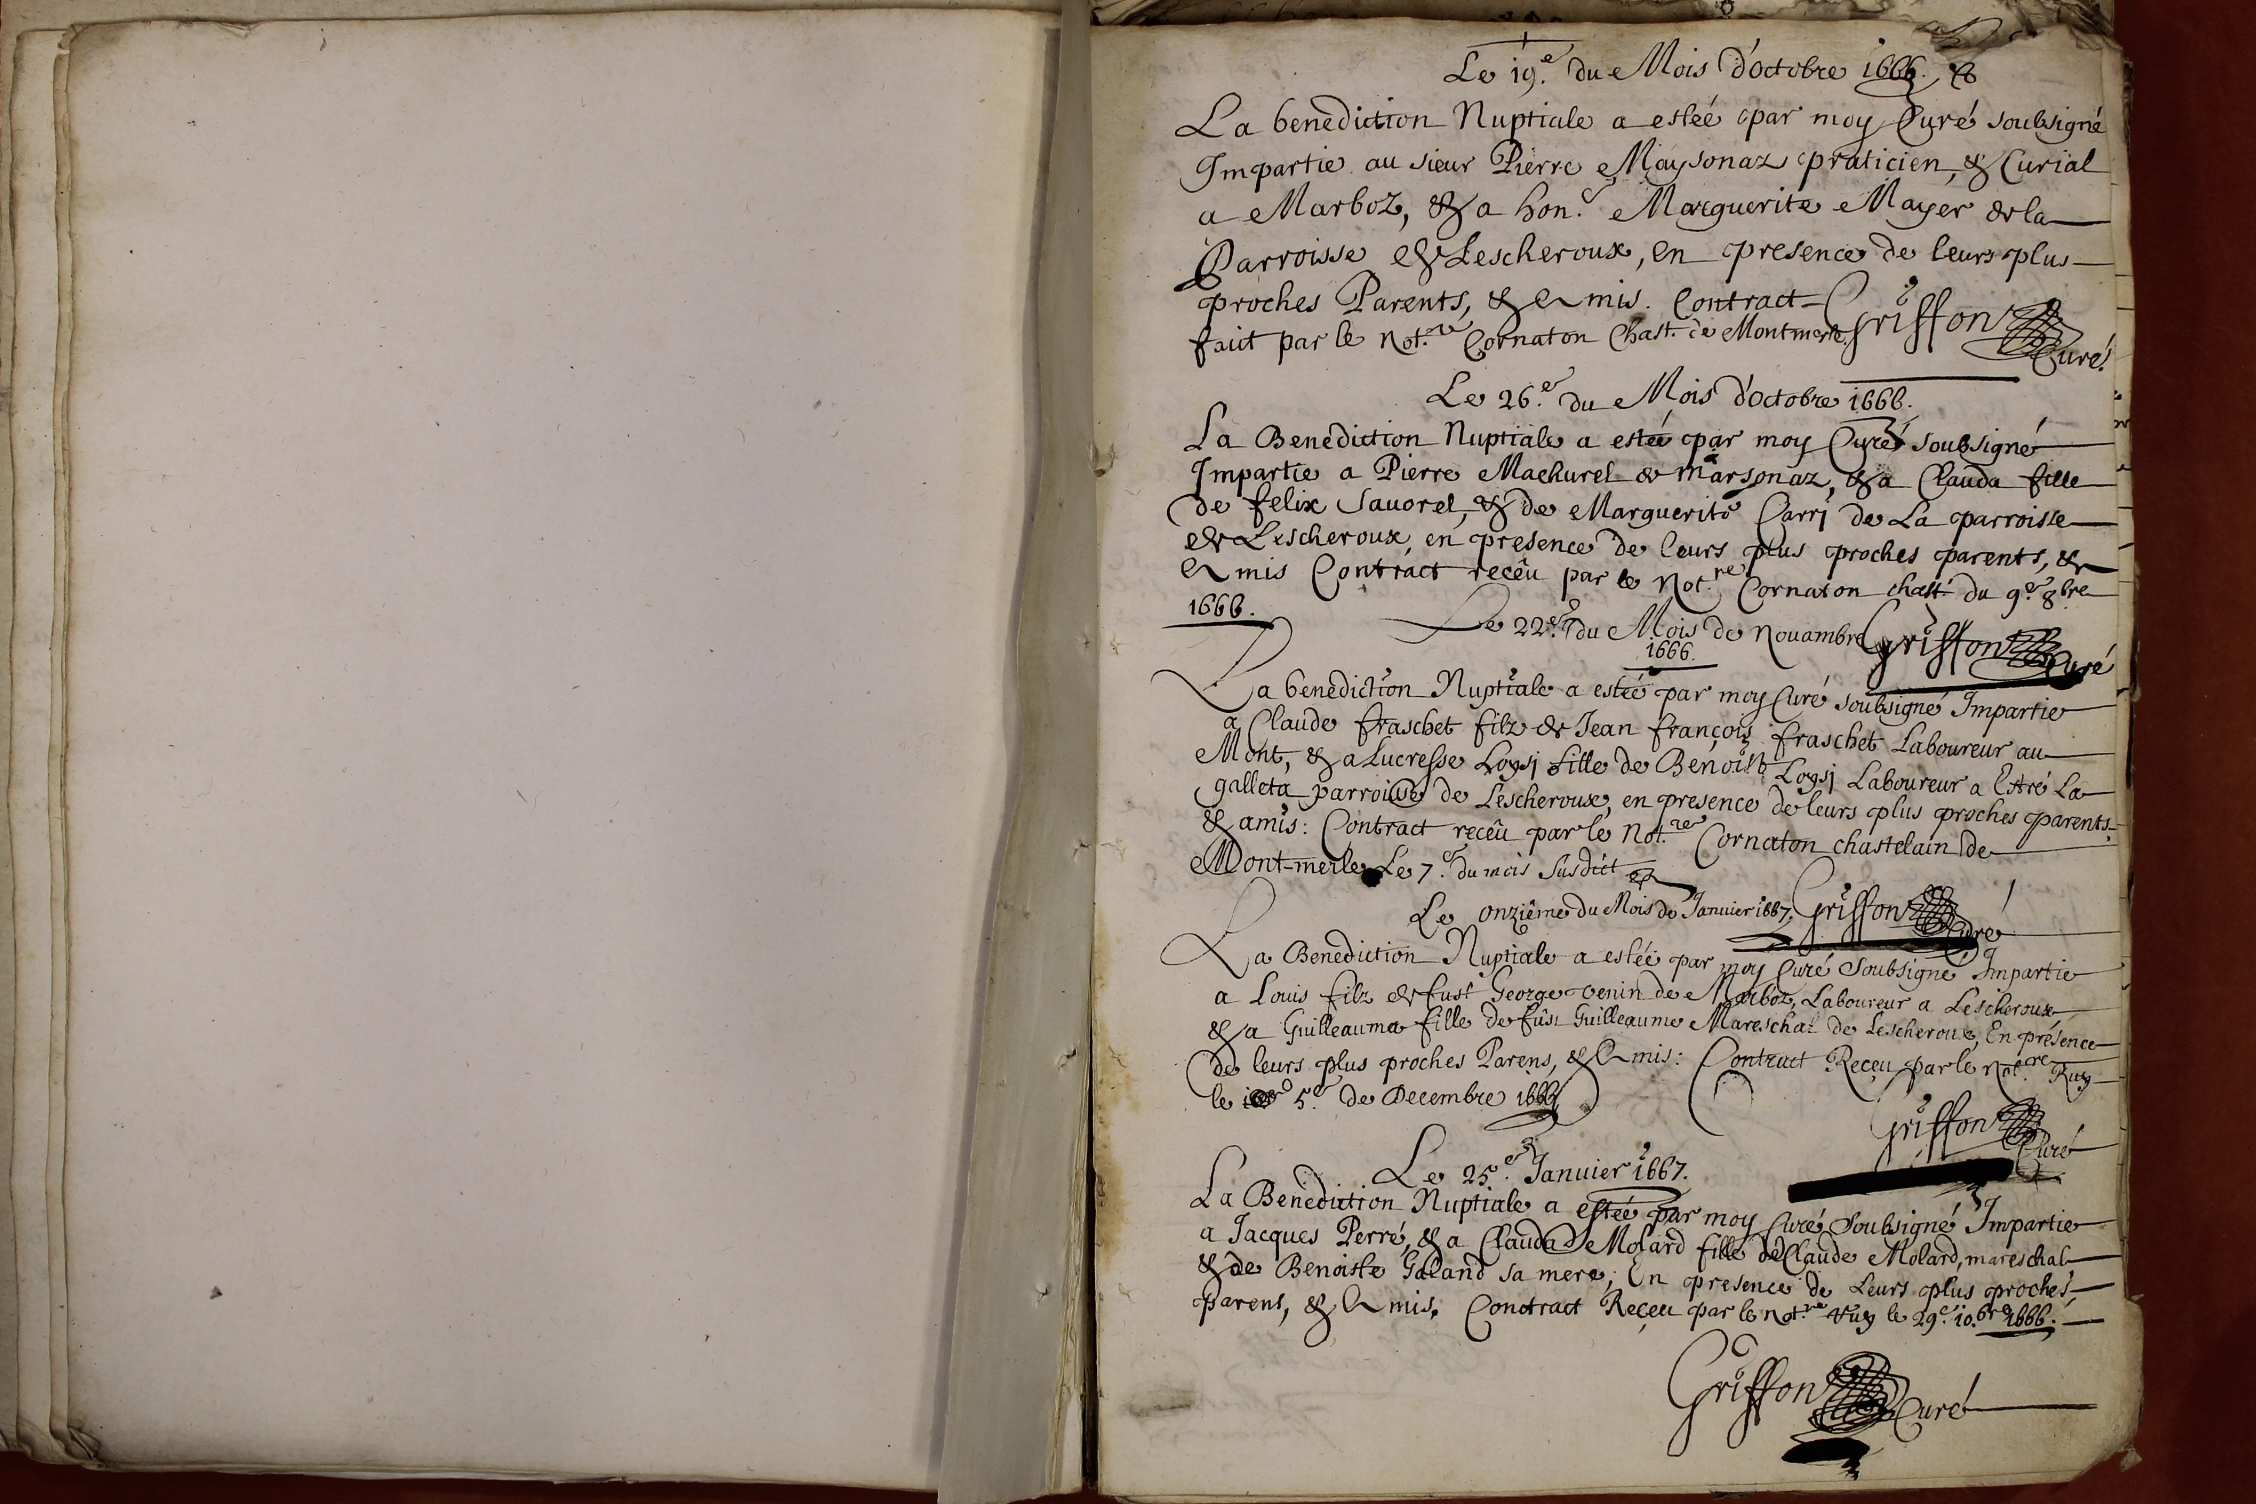 Le 19.e du Mois d'octobre 1666.
La benediction Nuptiale a estéé par moy Curé soubsigné
Impartie au sieur Pierre Maysonaz praticien, & Curial
a Marboz, & a hon.e Marguerite Mayer de la
Parroisse de Lescheroux, en presence de leurs plus
proches Parents, & Amis. Contract
fait par le Not.re Cornaton Chast. de Montmerle. Griffon
Curé
Le 26.e du Mois d'octobre 1666.
La Benediction Nuptiale a estéé par moy Curé soubsigné
Impartie a Pierre Machurel de marsonaz, & a Clauda fille
de felix Savorel, & de Marguerite Carrj de La parroisse
de Lescheroux, en presence de leurs plus proches parents, &
Amis Contract receu par le Not.re Cornaton chast. du 9.e 8bre
1666.
Le 22.e du Mois de Novambre Griffon
1666. Curé
La benediction Nuptiale a estéé par moy Curé soubsigné Impartie
a Claude fraschet filz de Jean françois fraschet Laboureur au
Mont, & a Lucresse Loysj fille de Benoist Loysj Laboureur a Estré La
galleta parroisse de Lescheroux, en presence de leurs plus proches parents
& amis: Contract receu par le Not.re Cornaton chastelain de
Mont-merle Le 7.e du mois susdict
Le onziême du Mois de Janvier 1667. Griffon
Curé
La Benediction Nuptiale a estéé par moy Curé Soubsigné Impartie
a Louis filz de fust George venin de Marboz, Laboureur a Lescheroux
& a Guilleauma fille de fust Guilleaume Mareschal de Lescheroux, En présence
de leurs plus proches Parens, & Amis: Contract Reçeu par le Not.re Ruy
le 5.e de Decembre 1666
Griffon
Curé
Le 25.e Janvier 1667.
La Benediction Nuptiale a estéé par moy Curé Soubsigné Impartie
a Jacques Perré, & a Clauda Molard fille de Claude Molard, mareschal
& de Benoiste Galand sa mere, En presence de Leurs plus proches
parens, & Amis. Contract Reçeu par le not.re le 29.e 10.bre 1666.
Griffon Curé